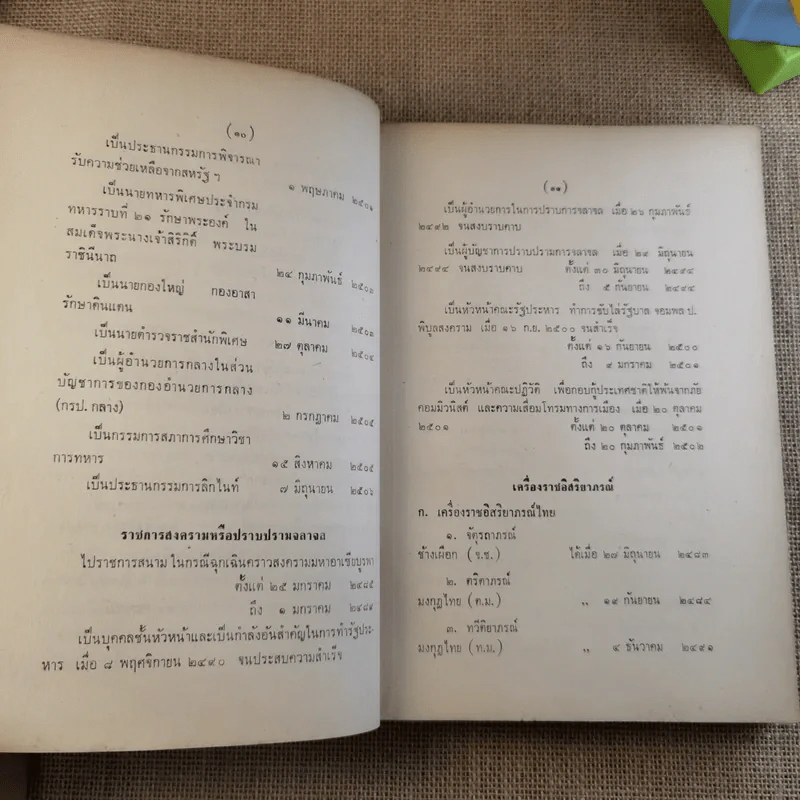 (๑๐)
เป็นประธานกรรมการพิจารณา
รับความช่วยเหลือจากสหรัฐ ฯ
๑ พฤษภาคม ๒๕๐๑
เป็นนายทหารพิเศษประจำกรม
ทหารราบที่ ๒๑ รักษาพระองค์ ใน
สมเด็จพระนางเจ้าสิริกิติ์ พระบรม
ราชินีนาถ
๒๔ กุมภาพันธ์ ๒๕๐๓
เป็นนายกองใหญ่ กองอาสา
รักษาดินแดน
๑๑ มีนาคม ๒๕๐๓
เป็นนายตำรวจราชสำนักพิเศษ ๒๗ ตุลาคม ๒๕๐๔
เป็นผู้อำนวยการกลางในส่วน
บัญชาการของกองอำนวยการกลาง
(กรป. กลาง) ๒ กรกฎาคม ๒๕๐๕
เป็นกรรมการสภาการศึกษาวิชา
การทหาร ๑๕ สิงหาคม ๒๕๐๕
เป็นประธานกรรมการลิกไนท์ ๗ มิถุนายน ๒๕๐๖
ราชการสงครามหรือปราบปรามจลาจล
ไปราชการสนาม ในกรณีฉุกเฉินคราวสงครามมหาอาเซียบูรพา
ตั้งแต่ ๒๕ มกราคม ๒๔๘๕
ถึง ๑ มกราคม ๒๔๘๙
เป็นบุคคลชั้นหัวหน้าและเป็นกำลังอันสำคัญในการทำรัฐประ-
หาร เมื่อ ๘ พฤศจิกายน ๒๔๙๐ จนประสบความสำเร็จ
(๑๑)
เป็นผู้อำนวยการในการปราบการจลาจล เมื่อ ๒๖ กุมภาพันธ์
๒๔๙๒ จนสงบราบคาบ
เป็นผู้บัญชาการปราบปรามการจลาจล เมื่อ ๒๙ มิถุนายน
๒๔๙๔ จนสงบราบคาบ ตั้งแต่ ๓๐ มิถุนายน ๒๔๙๔
ถึง ๕ กันยายน ๒๔๙๔
เป็นหัวหน้าคณะรัฐประหาร ทำการขับไล่รัฐบาล จอมพล ป.
พิบูลสงคราม เมื่อ ๑๖ ก.ย. ๒๕๐๐ จนสำเร็จ
ตั้งแต่ ๑๖ กันยายน ๒๕๐๐
ถึง ๙ มกราคม ๒๕๐๑
เป็นหัวหน้าคณะปฏิวัติ เพื่อกอบกู้ประเทศชาติให้พ้นจากภัย
คอมมิวนิสต์ และความเสื่อมโทรมทางการเมือง เมื่อ ๒๐ ตุลาคม
๒๕๐๑ ตั้งแต่ ๒๐ ตุลาคม ๒๕๐๑
ถึง ๒๐ กุมภาพันธ์ ๒๕๐๒
เครื่องราชอิสริยาภรณ์
ก. เครื่องราชอิสริยาภรณ์ไทย
๑. จัตุรถาภรณ์
ช้างเผือก (จ.ช.) ได้เมื่อ ๒๗ มิถุนายน ๒๔๘๓
๒. ตริตาภรณ์
มงกุฎไทย (ต.ม.) ,, ๑๙ กันยายน ๒๔๘๔
๓. ทวีติยาภรณ์
มงกุฎไทย (ท.ม.) ,, ๔ ธันวาคม ๒๔๙๑